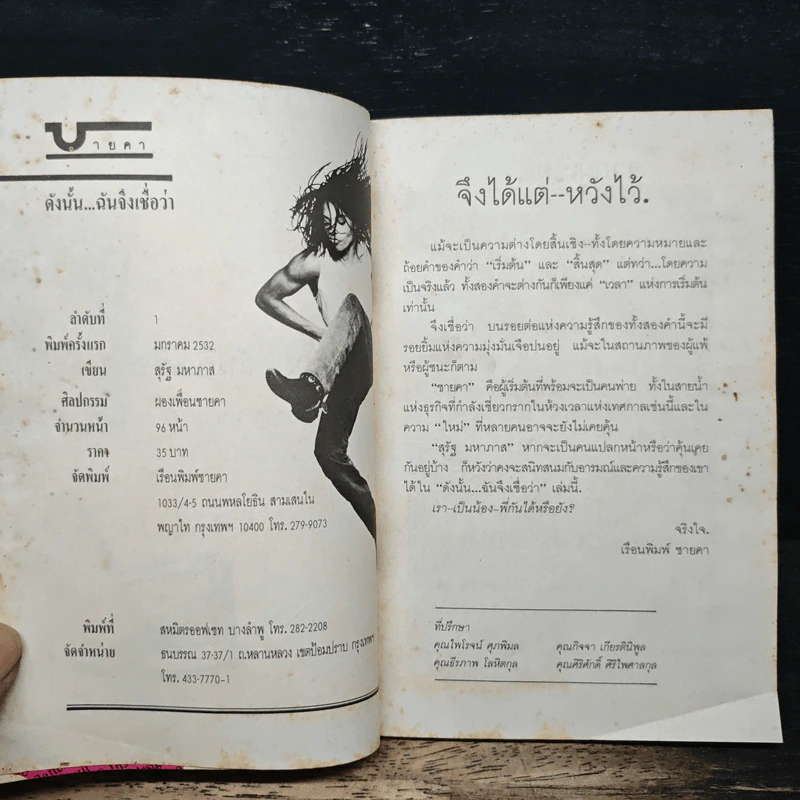 ชายคา
ดังนั้น...ฉันจึงเชื่อว่า
ลำดับที่ 1
พิมพ์ครั้งแรก มกราคม 2532
เขียน สุรัฐ มหาภาส
ศิลปกรรม ผองเพื่อนชายคา
จำนวนหน้า 96 หน้า
ราคา 35 บาท
จัดพิมพ์ เรือนพิมพ์ชายคา
1033/4-5 ถนนพหลโยธิน สามเสนใน
พญาไท กรุงเทพฯ 10400 โทร. 279-9073
พิมพ์ที่ สหมิตรออฟเซท บางลำพู โทร. 282-2208
จัดจำหน่าย ธนบรรณ 37-37/1 ถ.หลานหลวง เขตป้อมปราบ กรุงเทพฯ
โทร. 433-7770-1
จึงได้แต่--หวังไว้.
แม้จะเป็นความต่างโดยสิ้นเชิง--ทั้งโดยความหมายและ
ถ้อยคำของคำว่า “เริ่มต้น” และ “สิ้นสุด” แต่ทว่า...โดยความ
เป็นจริงแล้ว ทั้งสองคำจะต่างกันก็เพียงแค่ “เวลา” แห่งการเริ่มต้น
เท่านั้น
จึงเชื่อว่า บนรอยต่อแห่งความรู้สึกของทั้งสองคำนี้จะมี
รอยยิ้มแห่งความมุ่งมั่นเจือปนอยู่ แม้จะในสถานภาพของผู้แพ้
หรือผู้ชนะก็ตาม
“ชายคา” คือผู้เริ่มต้นที่พร้อมจะเป็นคนพ่าย ทั้งในสายน้ำ
แห่งธุรกิจที่กำลังเชี่ยวกรากในห้วงเวลาแห่งเทศกาลเช่นนี้และใน
ความ “ใหม่” ที่หลายคนอาจจะยังไม่เคยคุ้น
“สุรัฐ มหาภาส” หากจะเป็นคนแปลกหน้าหรือว่าคุ้นเคย
กันอยู่บ้าง ก็หวังว่าคงจะสนิทสนมกับอารมณ์และความรู้สึกของเขา
ได้ใน “ดังนั้น...ฉันจึงเชื่อว่า” เล่มนี้.
เรา--เป็นน้อง-พี่กันได้หรือยัง?
จริงใจ.
เรือนพิมพ์ ชายคา
ที่ปรึกษา
คุณไพโรจน์ ศุภพิมล คุณกิจจา เกียรตินิพูล
คุณธีรภาพ โลหิตกุล คุณศิริศักดิ์ ศิริไพศาลกุล